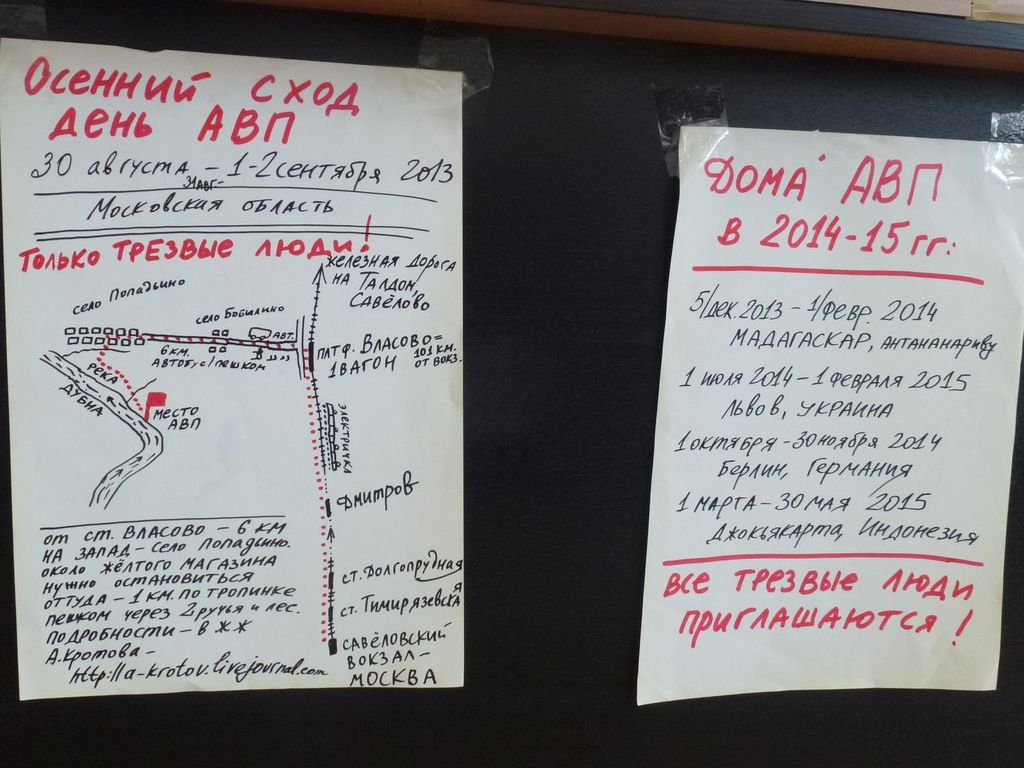 Осенний сход
день АВП
30 августа – 1-2 сентября 2013
31 авг-
Московская область
Только трезвые люди!
железная дорога
на Талдом,
Савёлово
село Попадьино
село Бобылино
АВТ.
6 км.
Автобус/пешком
плтф. Власово =
1 вагон
101 км.
от вокз.
река
Дубна
место
АВП
электричка
Дмитров
ст. Долгопрудная
ст. Тимирязевская
Савёловский
вокзал –
Москва
от ст. Власово – 6 км
на запад – село Попадьино.
около жёлтого магазина
нужно остановиться
оттуда – 1 км. по тропинке
пешком через 2 ручья и лес.
подробности – в ЖЖ
А.Кротова –
http://a-krotov.livejournal.com
Дома АВП
в 2014-15 гг:
5/дек 2013 – 1/февр 2014
Мадагаскар, Антананариву
1 июля 2014 – 1 февраля 2015
Львов, Украина
1 октября – 30 ноября 2014
Берлин, Германия
1 марта – 30 мая 2015
Джокьякарта, Индонезия
Все трезвые люди
приглашаются!